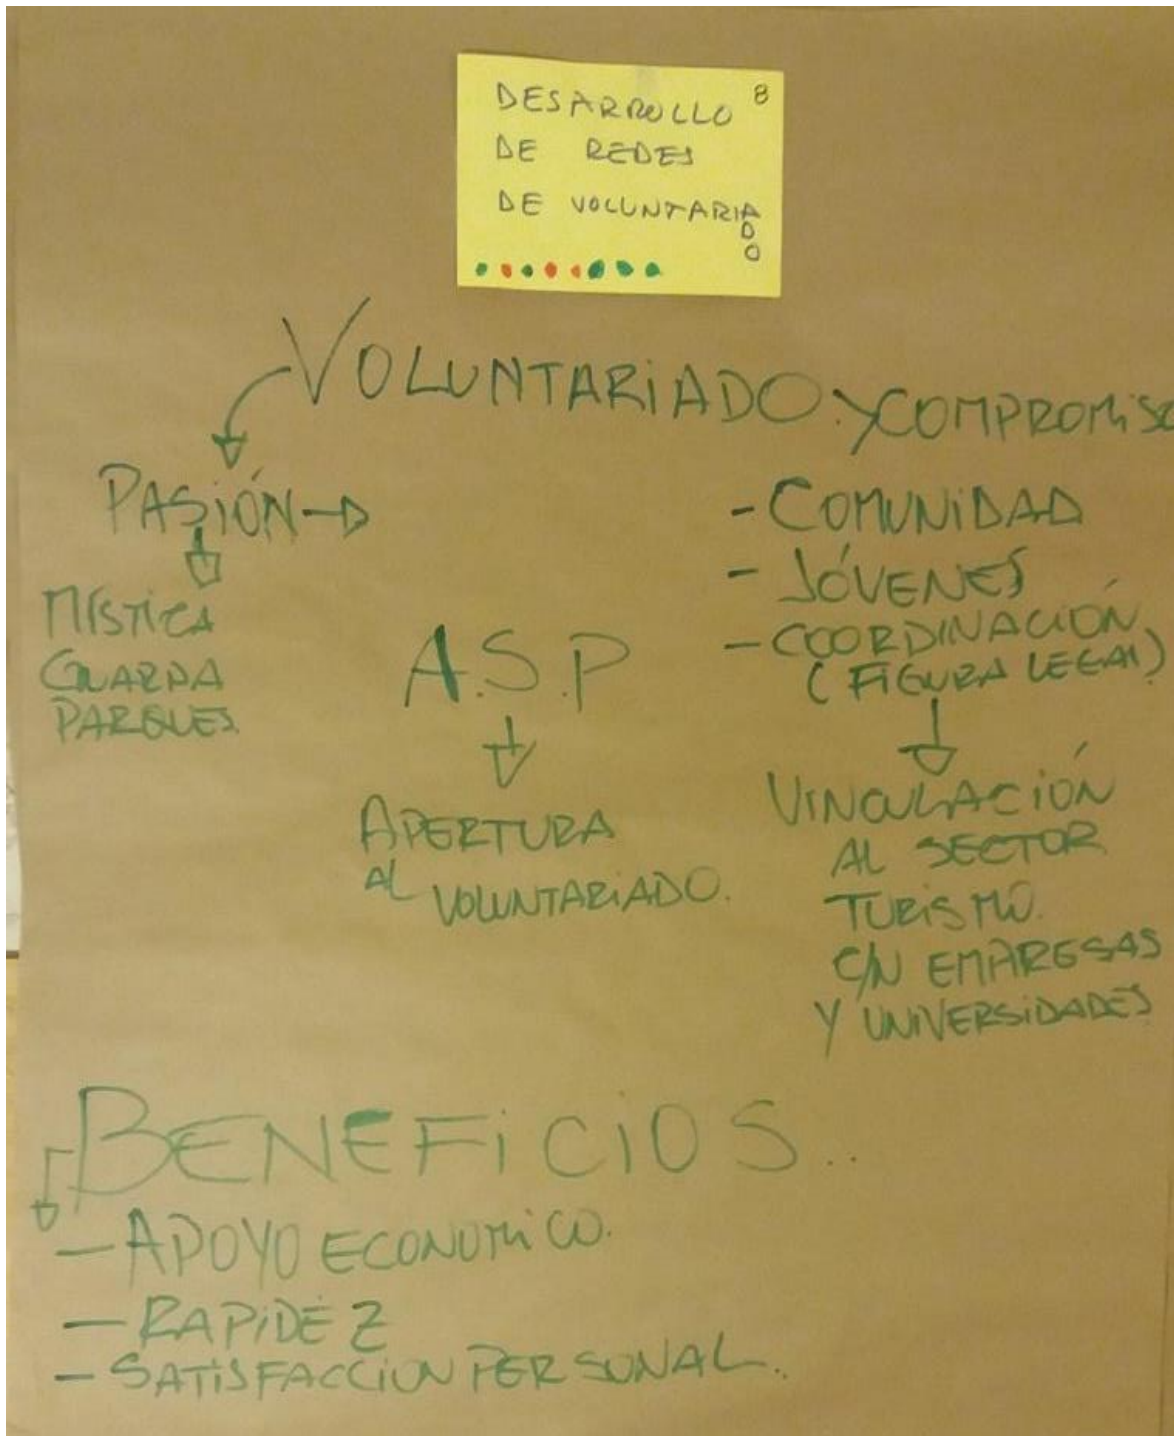 DESARROLLO 8
DE REDES
DE VOLUNTARIADO
VOLUNTARIADO Y COMPROMISO
PASIÓN
MÍSTICA
GUARDA
PARQUES
A.S.P
APERTURA
AL VOLUNTARIADO.
- COMUNIDAD
- JÓVENES
- COORDINACIÓN
(FIGURA LEGAL)
VINCULACIÓN
AL SECTOR
TURISMO.
C/N EMPRESAS
Y UNIVERSIDADES
BENEFICIOS..
- APOYO ECONOMICO.
- RAPIDÉZ
- SATISFACCION PERSONAL.